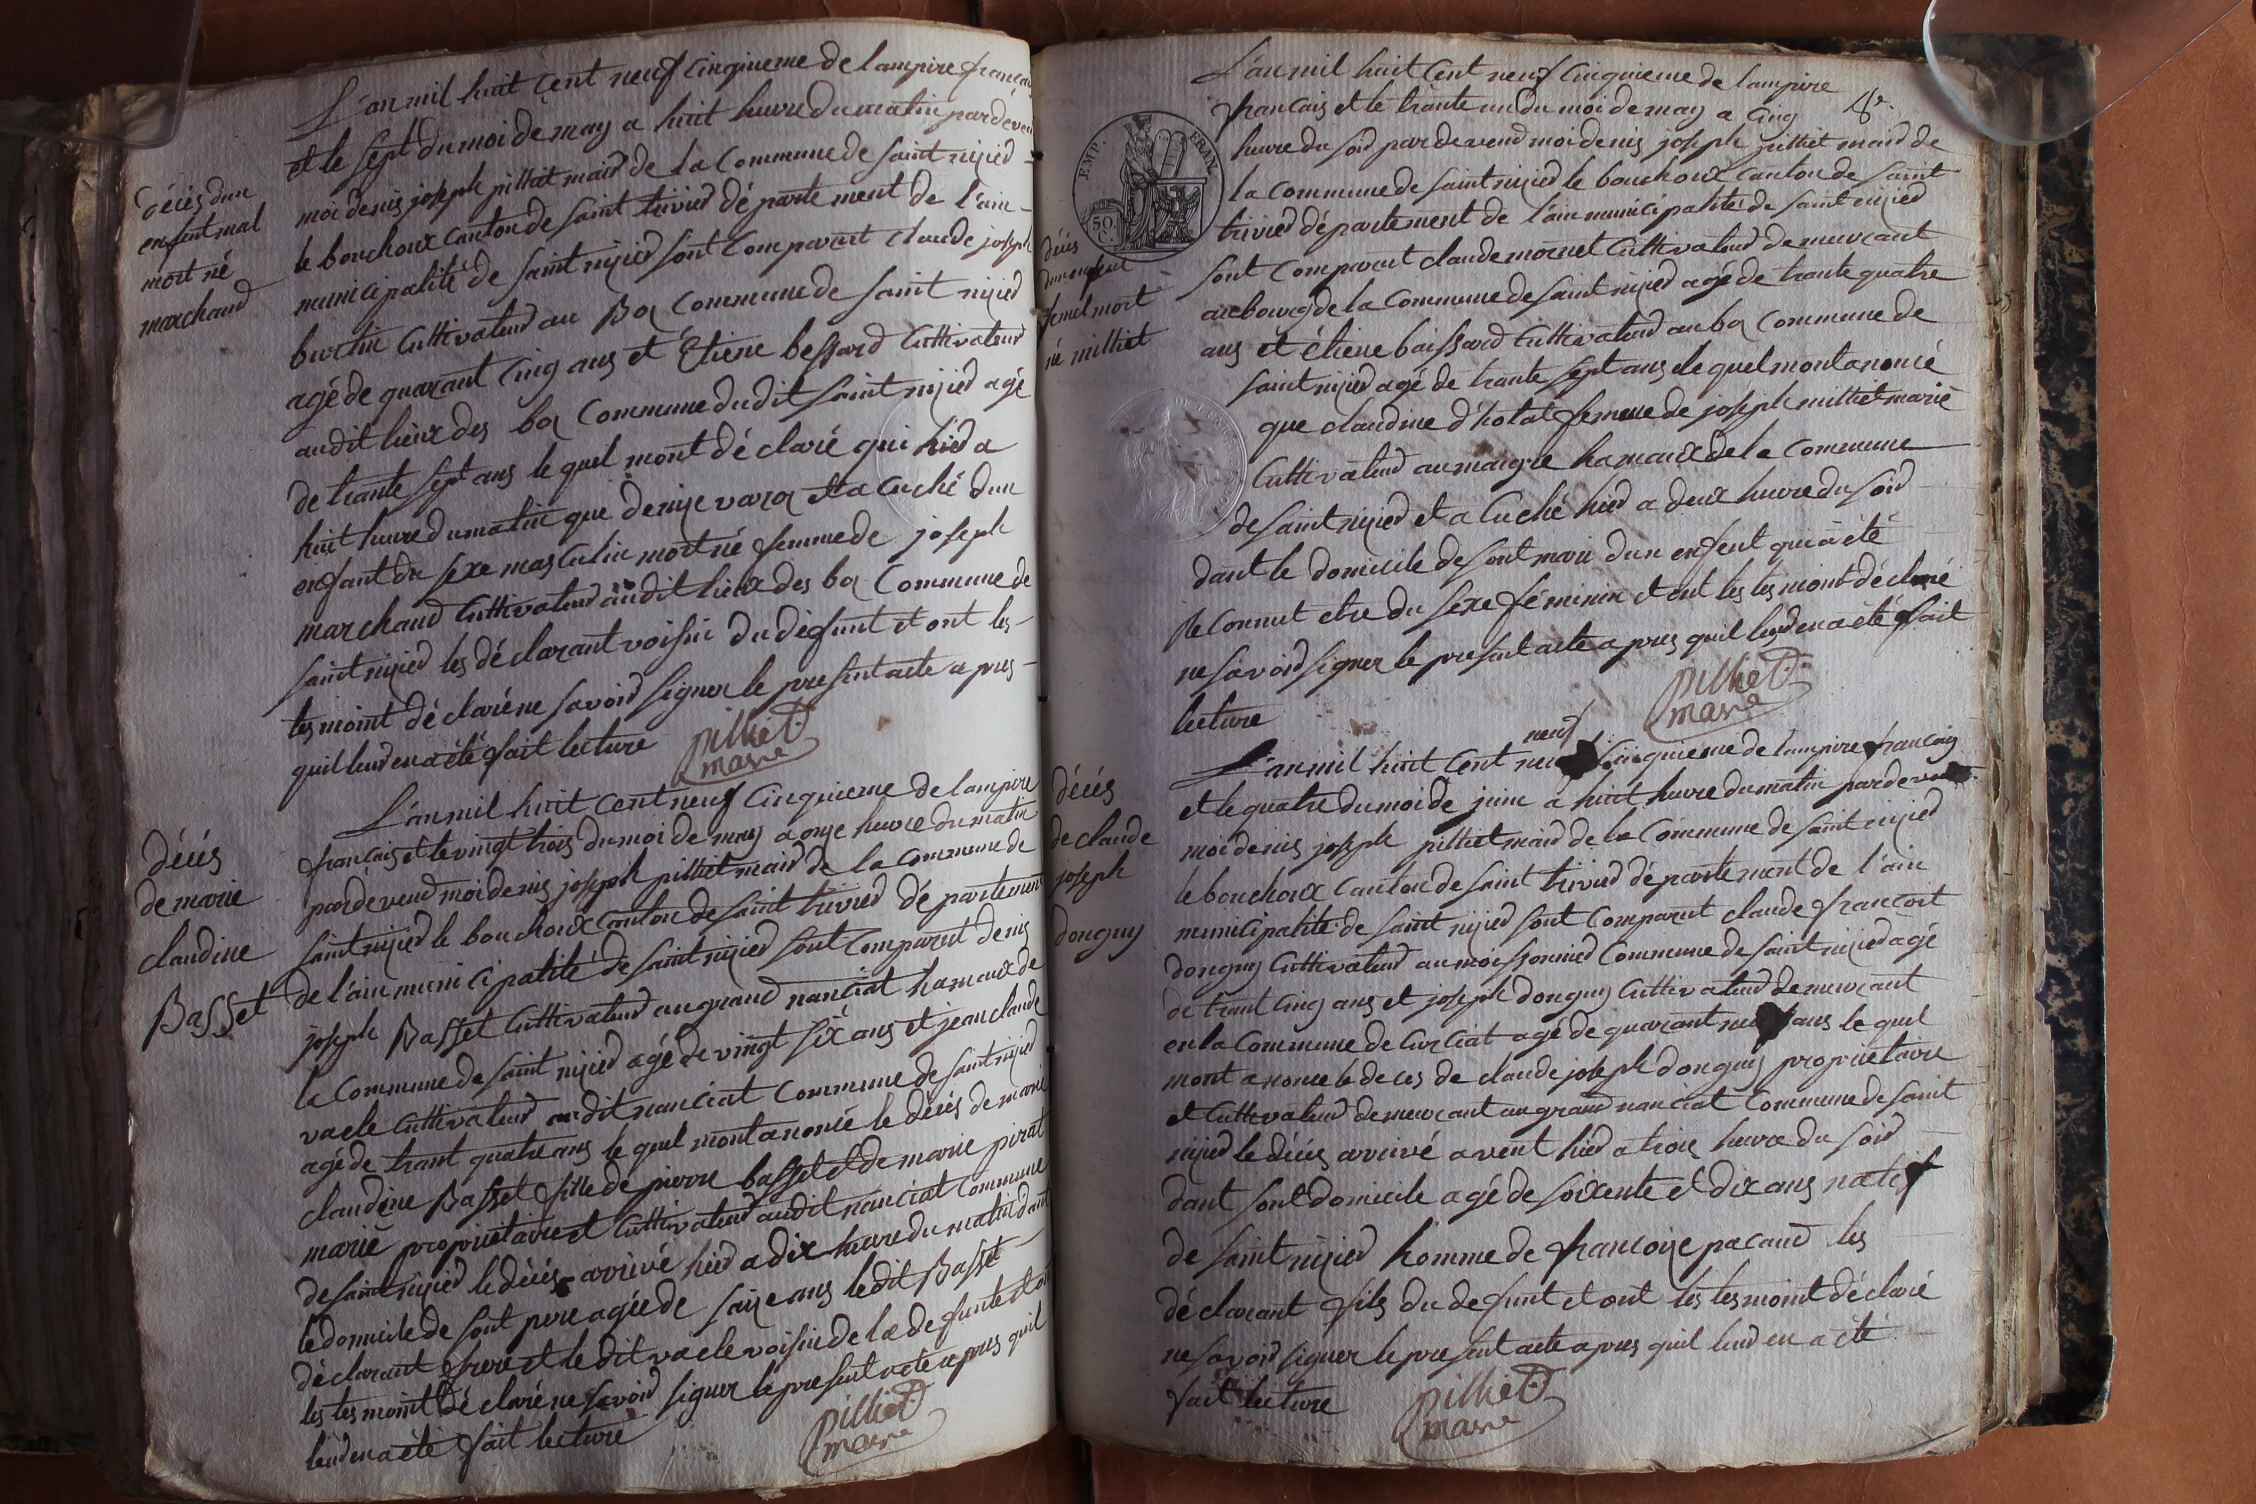 décés dun
enfent mal
mort né
marchand
L'an mil huit cent neuf cinquieme de lampire francais
et le sept du moi de may a huit heure du matin pardevend
moi denis joseph pilliet maird de la Commune de saint nijied
le bouchoux canton de saint trivied départe ment de l'ain
municipalité de saint nijied sont comparut claude joseph
burtin Cultivateud au Box commune de saint nijied
agé de quarant cinq ans et étiene bessard Cultivateud
audit lieux des box commune dudit saint nijied agé
de trante sept ans le quel mont déclaré qui hied a
huit heure du matin que denije varax et a cuché dun
enfant du sexe masculin mort né femme de joseph
marchand Cultivateud audit lieux des box Commune de
saint nijied les déclarant voisin du défunt et ont les
tesmoint déclaré ne savoid signer le present acte apres
quil leud en a été fait lecture
pilliet
maire
décés
de marie
claudine
Basset
L'an mil huit cent neuf Cinquieme de lampire
francais et le vingt trois du moi de may a onje heure du matin
pardevend moi denis joseph pilliet maird de la commune de
saint nijied le bouchoux canton de saint trivied département
de l'ain municipalité de saint nijied sont comparut denis
joseph Basset Cultivateud au grand nanciat hamaux de
la Commune de saint nijied agé de vingt six ans et jean claude
vacle Cultivateud audit nanciat commune de saint nijied
agé de trant quatre ans le quel mont anoncé le décés de marie
claudine Basset fille de pierre basset et de marie pirat
marié proprietaire et Cultivateud audit nanciat commune
de saint nijied le décés arrivé hied a dix heure du matin dant
le domicile de sont pere agée de saije ans le dit Basset
déclarant frere et le dit vacle voisin de la defunte et ont
les tesmoint déclaré ne savoid signer le present acte apres quil
leud en a été fait lecture
pilliet
maire
EMP. FRAN.
50
C.
décés
dun enfent
femel mort
né milliet
L'an mil huit Cent neuf Cinquieme de lampire
francais et le trante un du moi de may a cinq
heure du soid pardevend moi denis joseph pilliet maird de
la commune de saint nijied le bouchoux canton de saint
trivied département de l'ain municipalité de saint nijied
sont comparut claude mornet Cultivateud demeurant
au bourg de la Commune de saint nijied agé de trante quatre
ans et étiene baissard Cultivateud au box commune de
saint nijied agé de trante sept ans le quel mont anoncé
que claudine d'hotal femme de joseph milliet marié
Cultivateud au maigre hamaux de la commune
de saint nijied et a cuché hied a deux heure du soid
dant le domicile de sont mari dun enfent qui a été
Reconnut etre du sexe féminin et ont les tesmoint déclaré
ne savoid signer le present acte apres quil leud en a été fait
lecture
pilliet
maire
décés
de claude
joseph
donguy
neuf
L'an mil huit cent neuf Cinquieme de lampire francais
et le quatre du moi de juin a huit heure du matin pardevend
moi denis joseph pilliet maird de la Commune de saint nijied
le bouchoux canton de saint trivied département de l'ain
municipalité de saint nijied sont comparut claude francoit
donguy Cultivateud au moissonnied Commune de saint nijied agé
de trant cinq ans et joseph donguy Cultivateud demeurant
en la Commune de Curciat agé de quarant neuf ans le quel
mont anoncé le deces de claude joseph donguy proprietaire
et Cultivateud demeurant au grand nanciat Commune de saint
nijied le décés arrivé avent hied a troix heure du soid
dant sont domicile agé de soixente et dix ans natif
de saint nijied homme de francoije pacaud les
déclarant fils du defunt et ont les tesmoint déclaré
ne savoid signer le present acte apres quil leud en a été
fait lecture
pilliet
maire